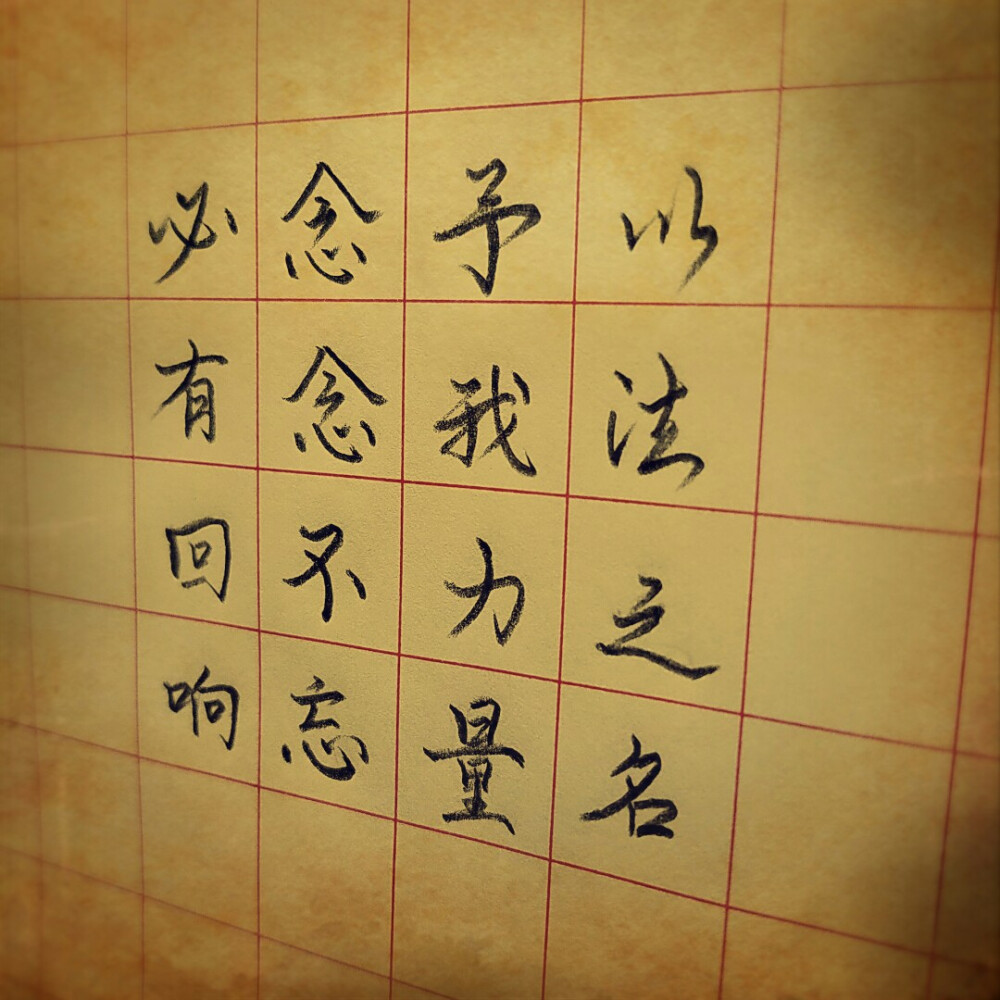 以法之名
予我力量
念念不忘
必有回响